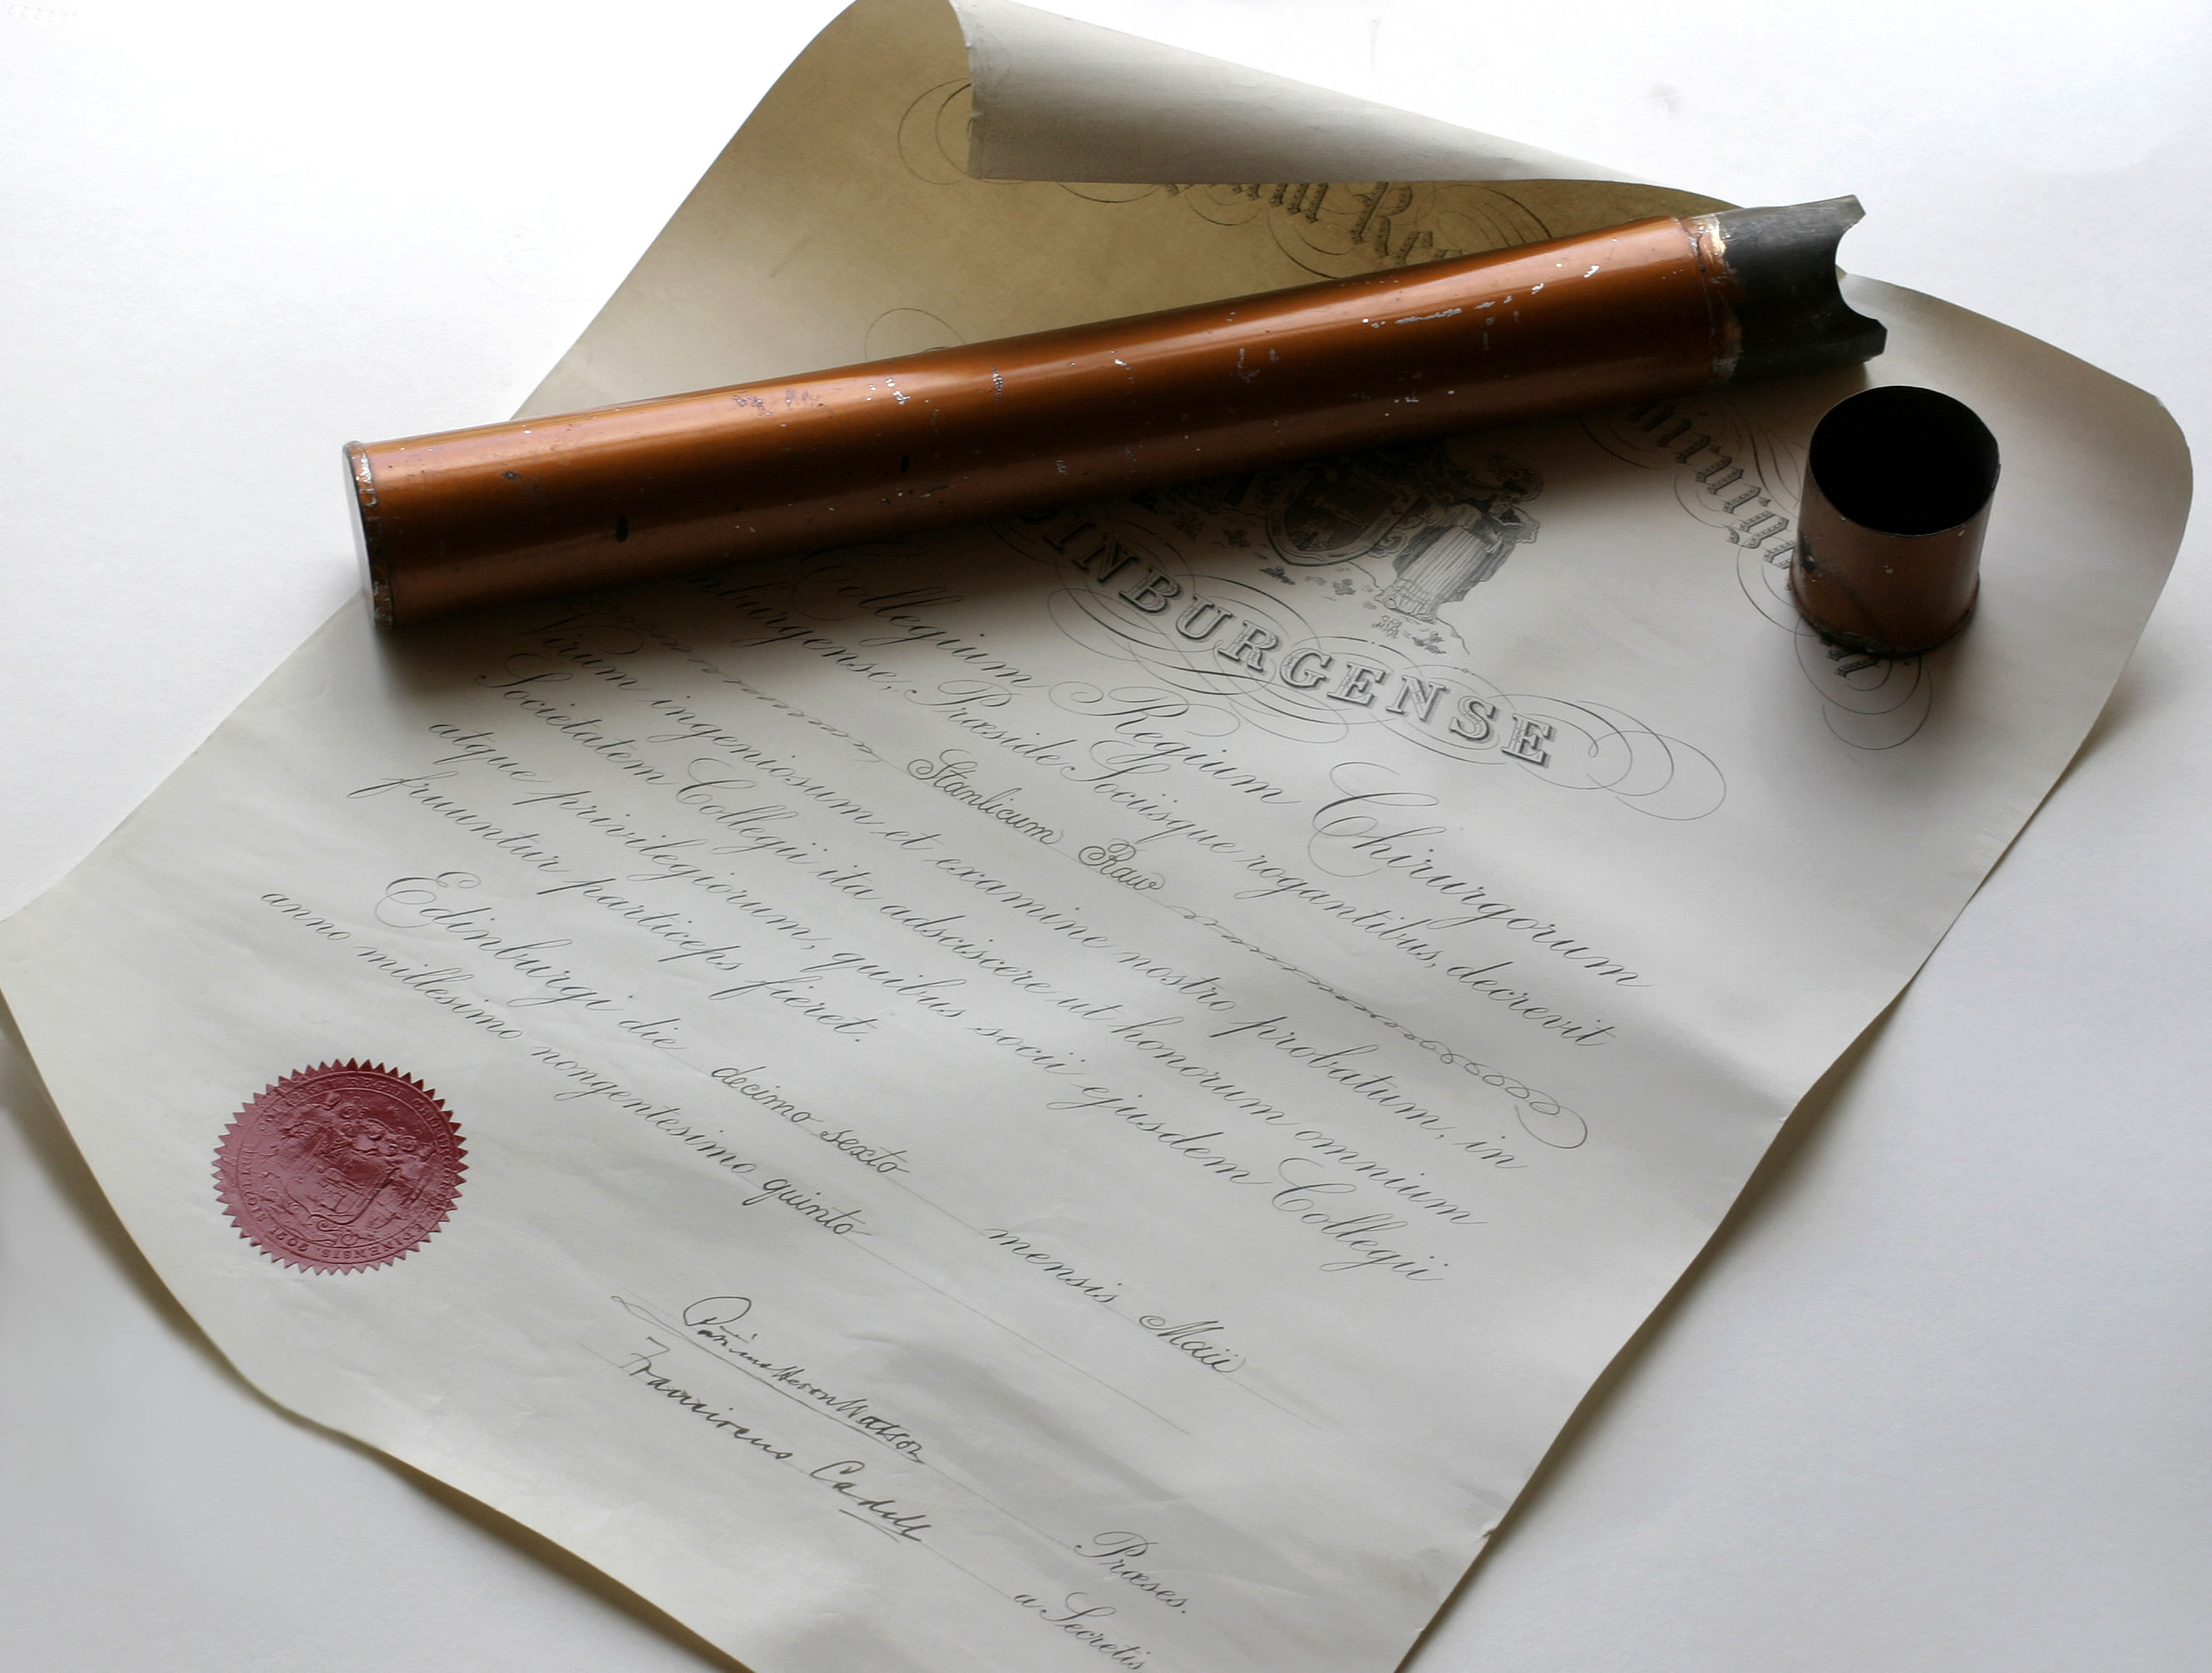 EDINBURGENSE
Collegium Regium Chirurgorum
Præside Sociisque rogantibus, decrevit
Stanlicum Raw
Virum ingeniosum et examine nostro probatum, in
Societatem Collegii ita adsciscere ut honorum omnium
atque privilegiorum, quibus socii ejusdem Collegii
fruuntur particeps fieret.
Edinburgi die decimo sexto mensis Maii
anno millesimo nongentesimo quinto
Heron Watson Præses.
Franciscus Cadell a Secretis